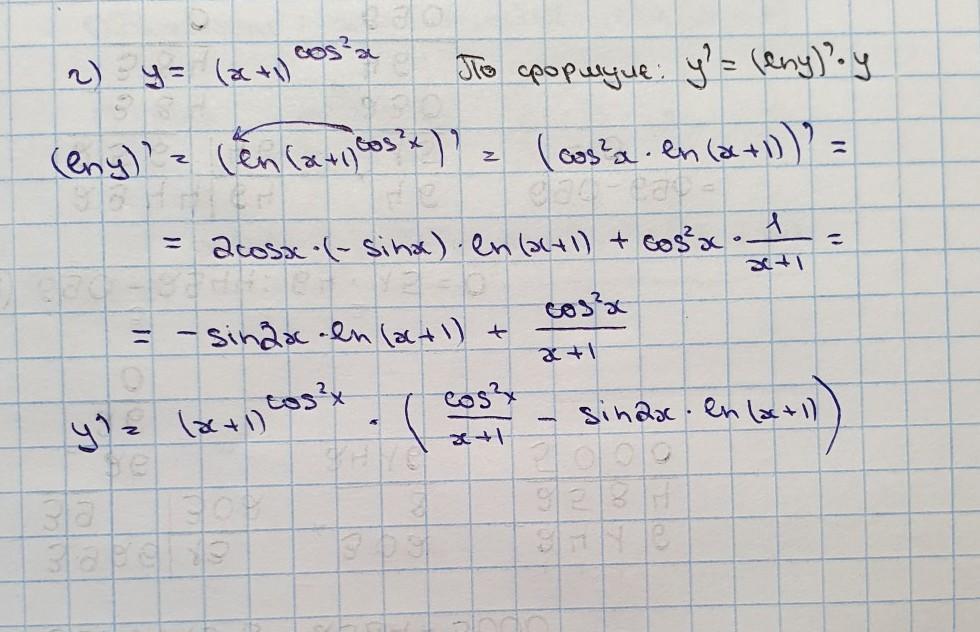 г) y = (x+1)^cos²x По формуле: y' = (ln y)' · y
(ln y)' = (ln (x+1)^cos²x)' = (cos²x · ln (x+1))' =
= 2cosx · (- sinx) · ln (x+1) + cos²x · 1/(x+1) =
= - sin2x · ln (x+1) + cos²x/(x+1)
y' = (x+1)^cos²x · (cos²x/(x+1) - sin2x · ln (x+1))